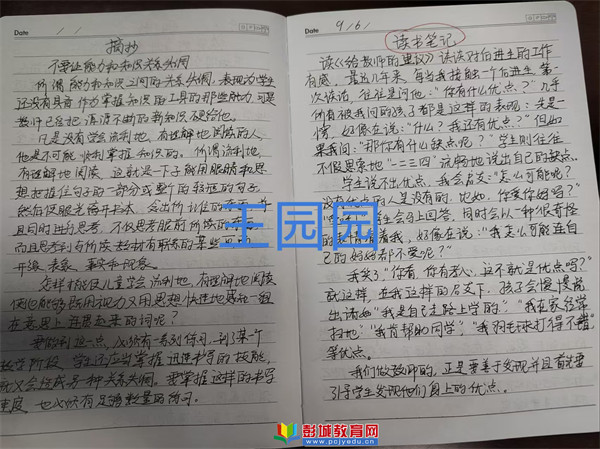 Date / /
摘抄
不要让能力和知识关系失调
所谓能力和知识之间的关系失调,表现为学生
还没有具备作为掌握知识的工具的那些能力,可是
教师已经把源源不断的新知识硬给他。
凡是没有学会流利地、有理解地阅读的人,
他是不可能顺利掌握知识的。所谓流利地、
有理解地阅读,这就是一下子能用眼睛和思
想把握住句子的一部分或整个的较短的句子,
然后使眼光离开书本,念出所记住的东西,并
且同时进行思考,不仅思考眼前所读的
而且思考到与所读教材有联系的某些
画、表象、事实和现象。
怎样才能使儿童学会流利地、有理解地阅读
使他能够既用视力又用思想快速地感知一组
在意思上连贯起来的词呢?
要做到这一点,必须有一系列练习,到了某个
教学阶段,学生还应当掌握迅速书写的技能,
否则又会造成另一种关系失调。要掌握这样的书写
速度,也必须有足够数量的练习。
Date 9/6/
读书笔记
读《给教师的建议》谈谈对后进生的工作
有感。最近几年来,每当我接触一个后进生,第一
次谈话,往往是问他:“你有什么优点?”几乎
所有被我问的孩子都是这样的表现:先是一
愣,好像在说:“什么?我还有优点?”但如
果我问:“那你有什么缺点呢?”学生则往往
不假思索地“一二三四”流畅地说出自己的缺点。
学生说不出优点,我会启发:“怎么可能呢?
没有优点的人是没有的,比如,你爱你妈吗?”
学生会马上回答,同时会以一种很奇怪
的表情看着我,好像在说:“我怎么可能连自
己的妈妈都不爱呢?”
我笑了“你看,你有孝心,这不就是优点吗?”
就这样,在我这样的启发下,孩子会慢慢说
出诸如“我是自己走路上学的”、“我在家经常
扫地”、“我肯帮助同学”、“我羽毛球打得不错”
等优点。
我们做教师的,正是要善于发现并且首先要
引导学生发现他们身上的优点。
王园园
彭城教育网
www.pcjyedu.cn